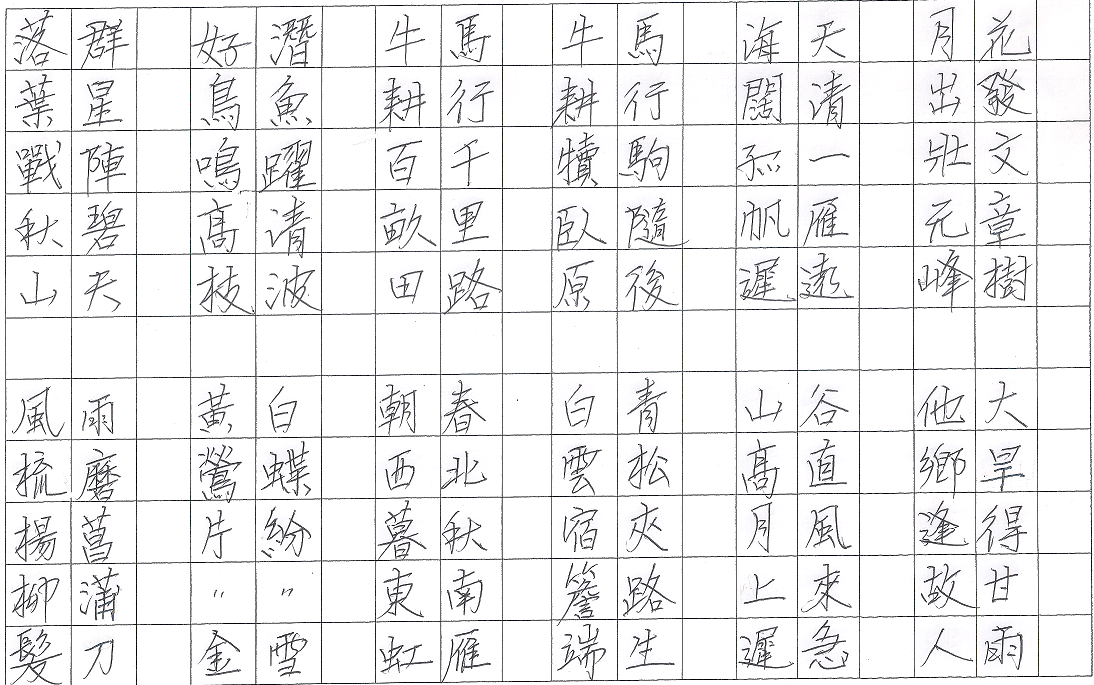 花發文章樹
月出壯元峰
天清一雁遠
海闊孤帆遲
馬行駒隨後
牛耕犢臥原
馬行千里路
牛耕百畝田
潛魚躍清波
好鳥鳴髙枝
群星陣碧天
落葉戰秋山
大旱得甘雨
他鄉逢故人
谷直風來急
山髙月上遲
青松夾路生
白雲宿簷端
春北秋南雁
朝西暮東虹
白蝶紛〃雪
黃鶯片〃金
雨磨菖蒲刀
風梳楊柳髮